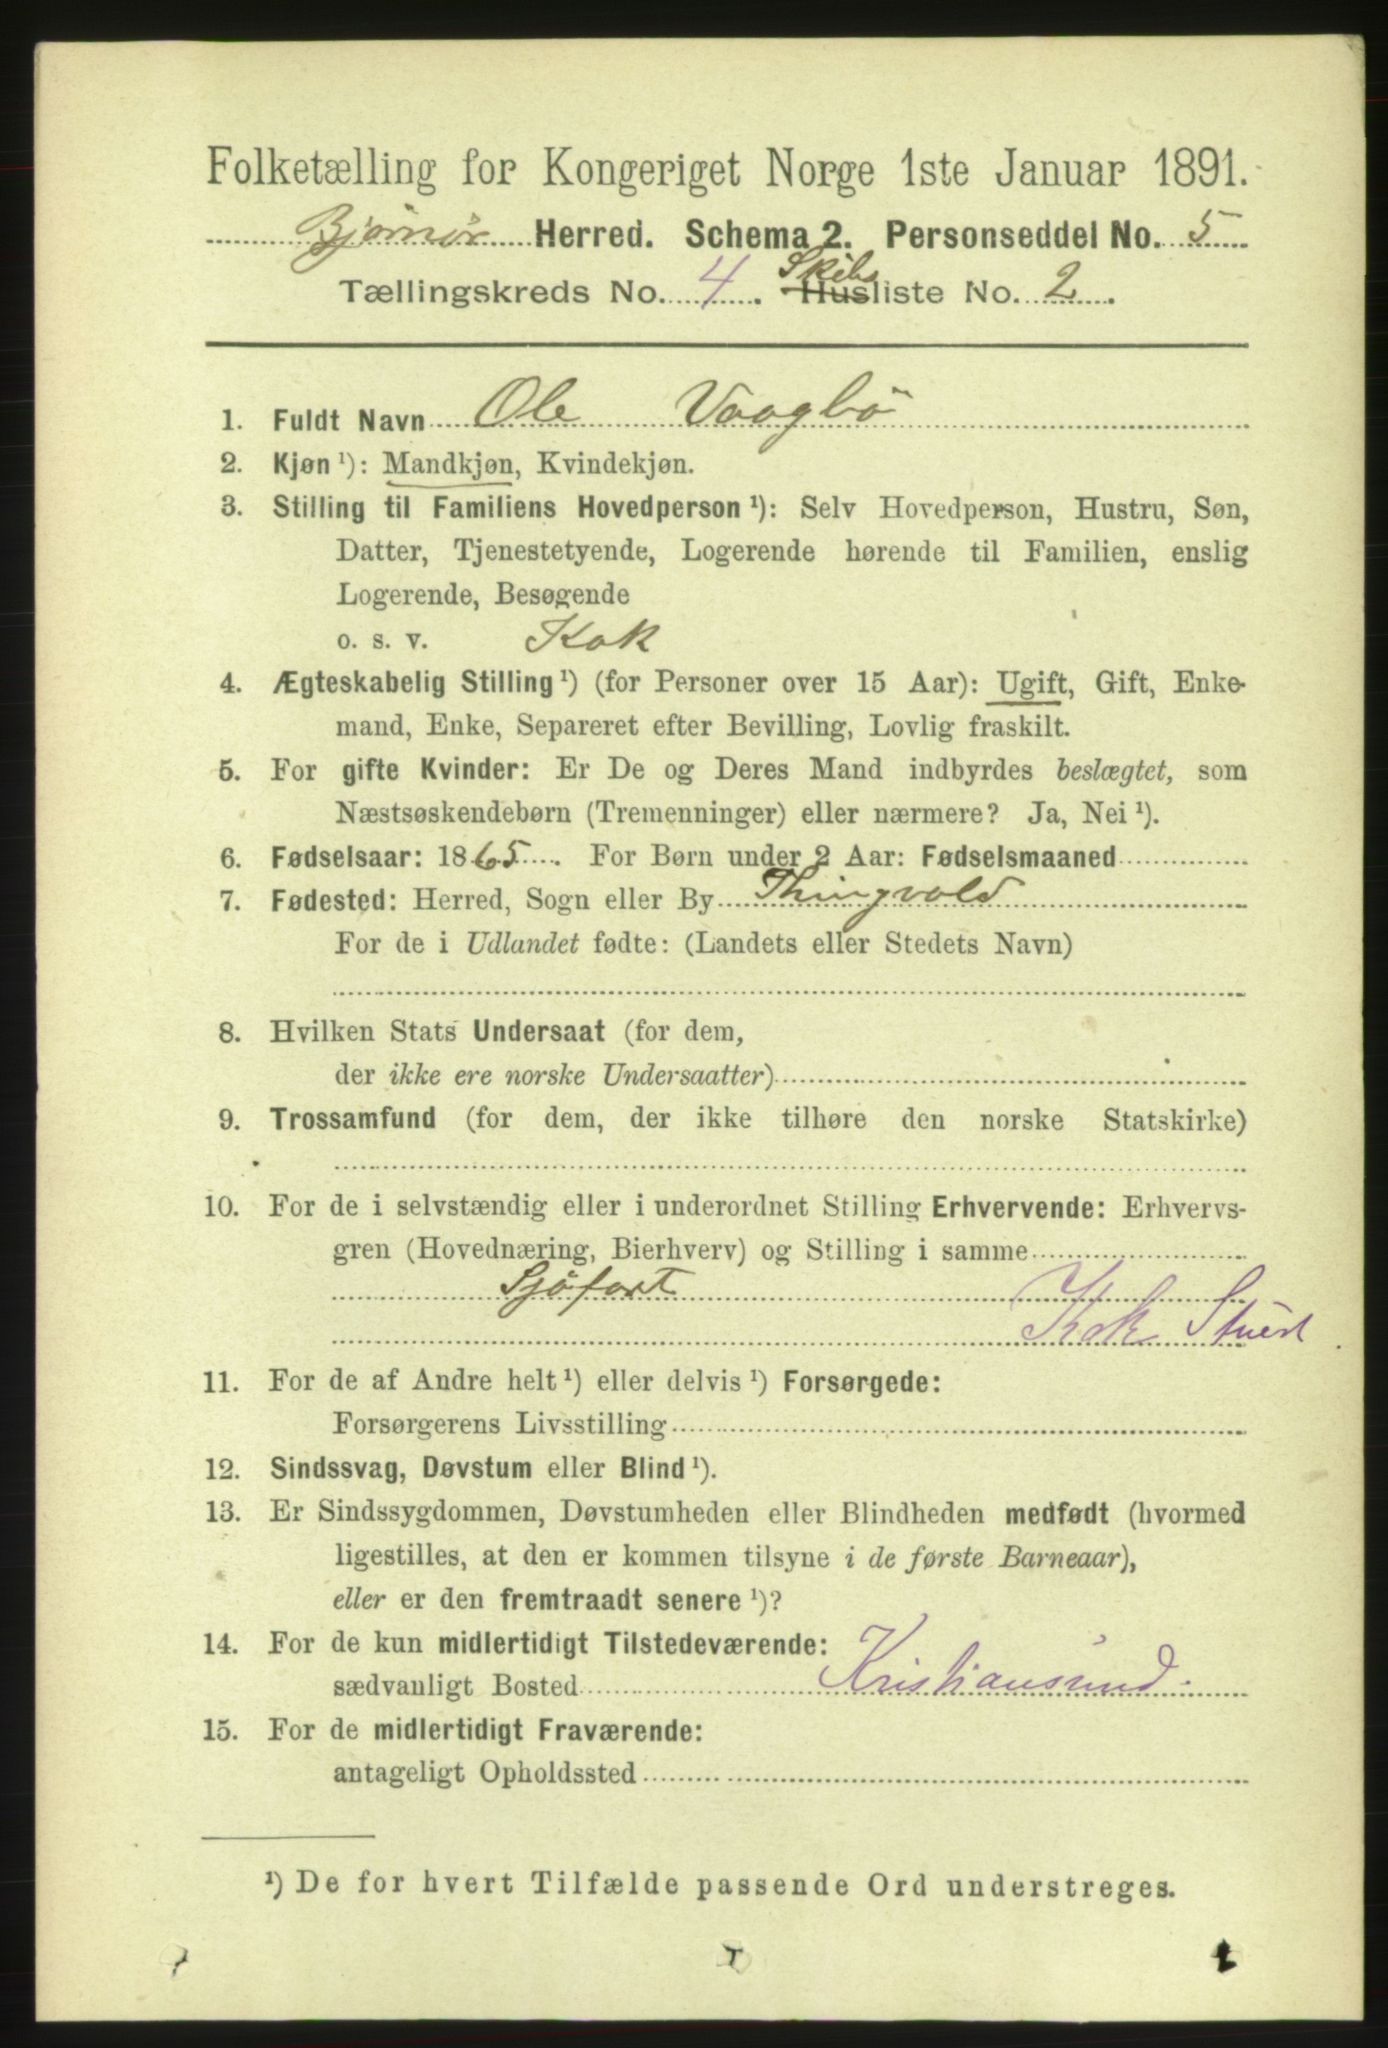 Folketælling for Kongeriget Norge 1ste Januar 1891.
Bjørnør Herred. Schema 2. Personseddel No. 5
Tællingskreds No. 4. Skibs Husliste No. 2.
1. Fuldt Navn Ole Vaagbö
2. Kjøn ¹): Mandkjøn, Kvindekjøn.
3. Stilling til Familiens Hovedperson ¹): Selv Hovedperson, Hustru, Søn,
Datter, Tjenestetyende, Logerende hørende til Familien, enslig
Logerende, Besøgende
o. s. v. Kok
4. Ægteskabelig Stilling ¹) (for Personer over 15 Aar): Ugift, Gift, Enke-
mand, Enke, Separeret efter Bevilling, Lovlig fraskilt.
5. For gifte Kvinder: Er De og Deres Mand indbyrdes beslægtet, som
Næstsøskendebørn (Tremenninger) eller nærmere? Ja, Nei ¹).
6. Fødselsaar: 1865. For Børn under 2 Aar: Fødselsmaaned
7. Fødested: Herred, Sogn eller By Thingvold
For de i Udlandet fødte: (Landets eller Stedets Navn)
8. Hvilken Stats Undersaat (for dem,
der ikke ere norske Undersaatter)
9. Trossamfund (for dem, der ikke tilhøre den norske Statskirke)
10. For de i selvstændig eller i underordnet Stilling Erhvervende: Erhvervs-
gren (Hovednæring, Bierhverv) og Stilling i samme
Sjöfart
Kok Stuert
11. For de af Andre helt ¹) eller delvis ¹) Forsørgede:
Forsørgerens Livsstilling
12. Sindssvag, Døvstum eller Blind ¹).
13. Er Sindssygdommen, Døvstumheden eller Blindheden medfødt (hvormed
ligestilles, at den er kommen tilsyne i de første Barneaar),
eller er den fremtraadt senere ¹)?
14. For de kun midlertidigt Tilstedeværende:
sædvanligt Bosted Kristiansund.
15. For de midlertidigt Fraværende:
antageligt Opholdssted
¹) De for hvert Tilfælde passende Ord understreges.